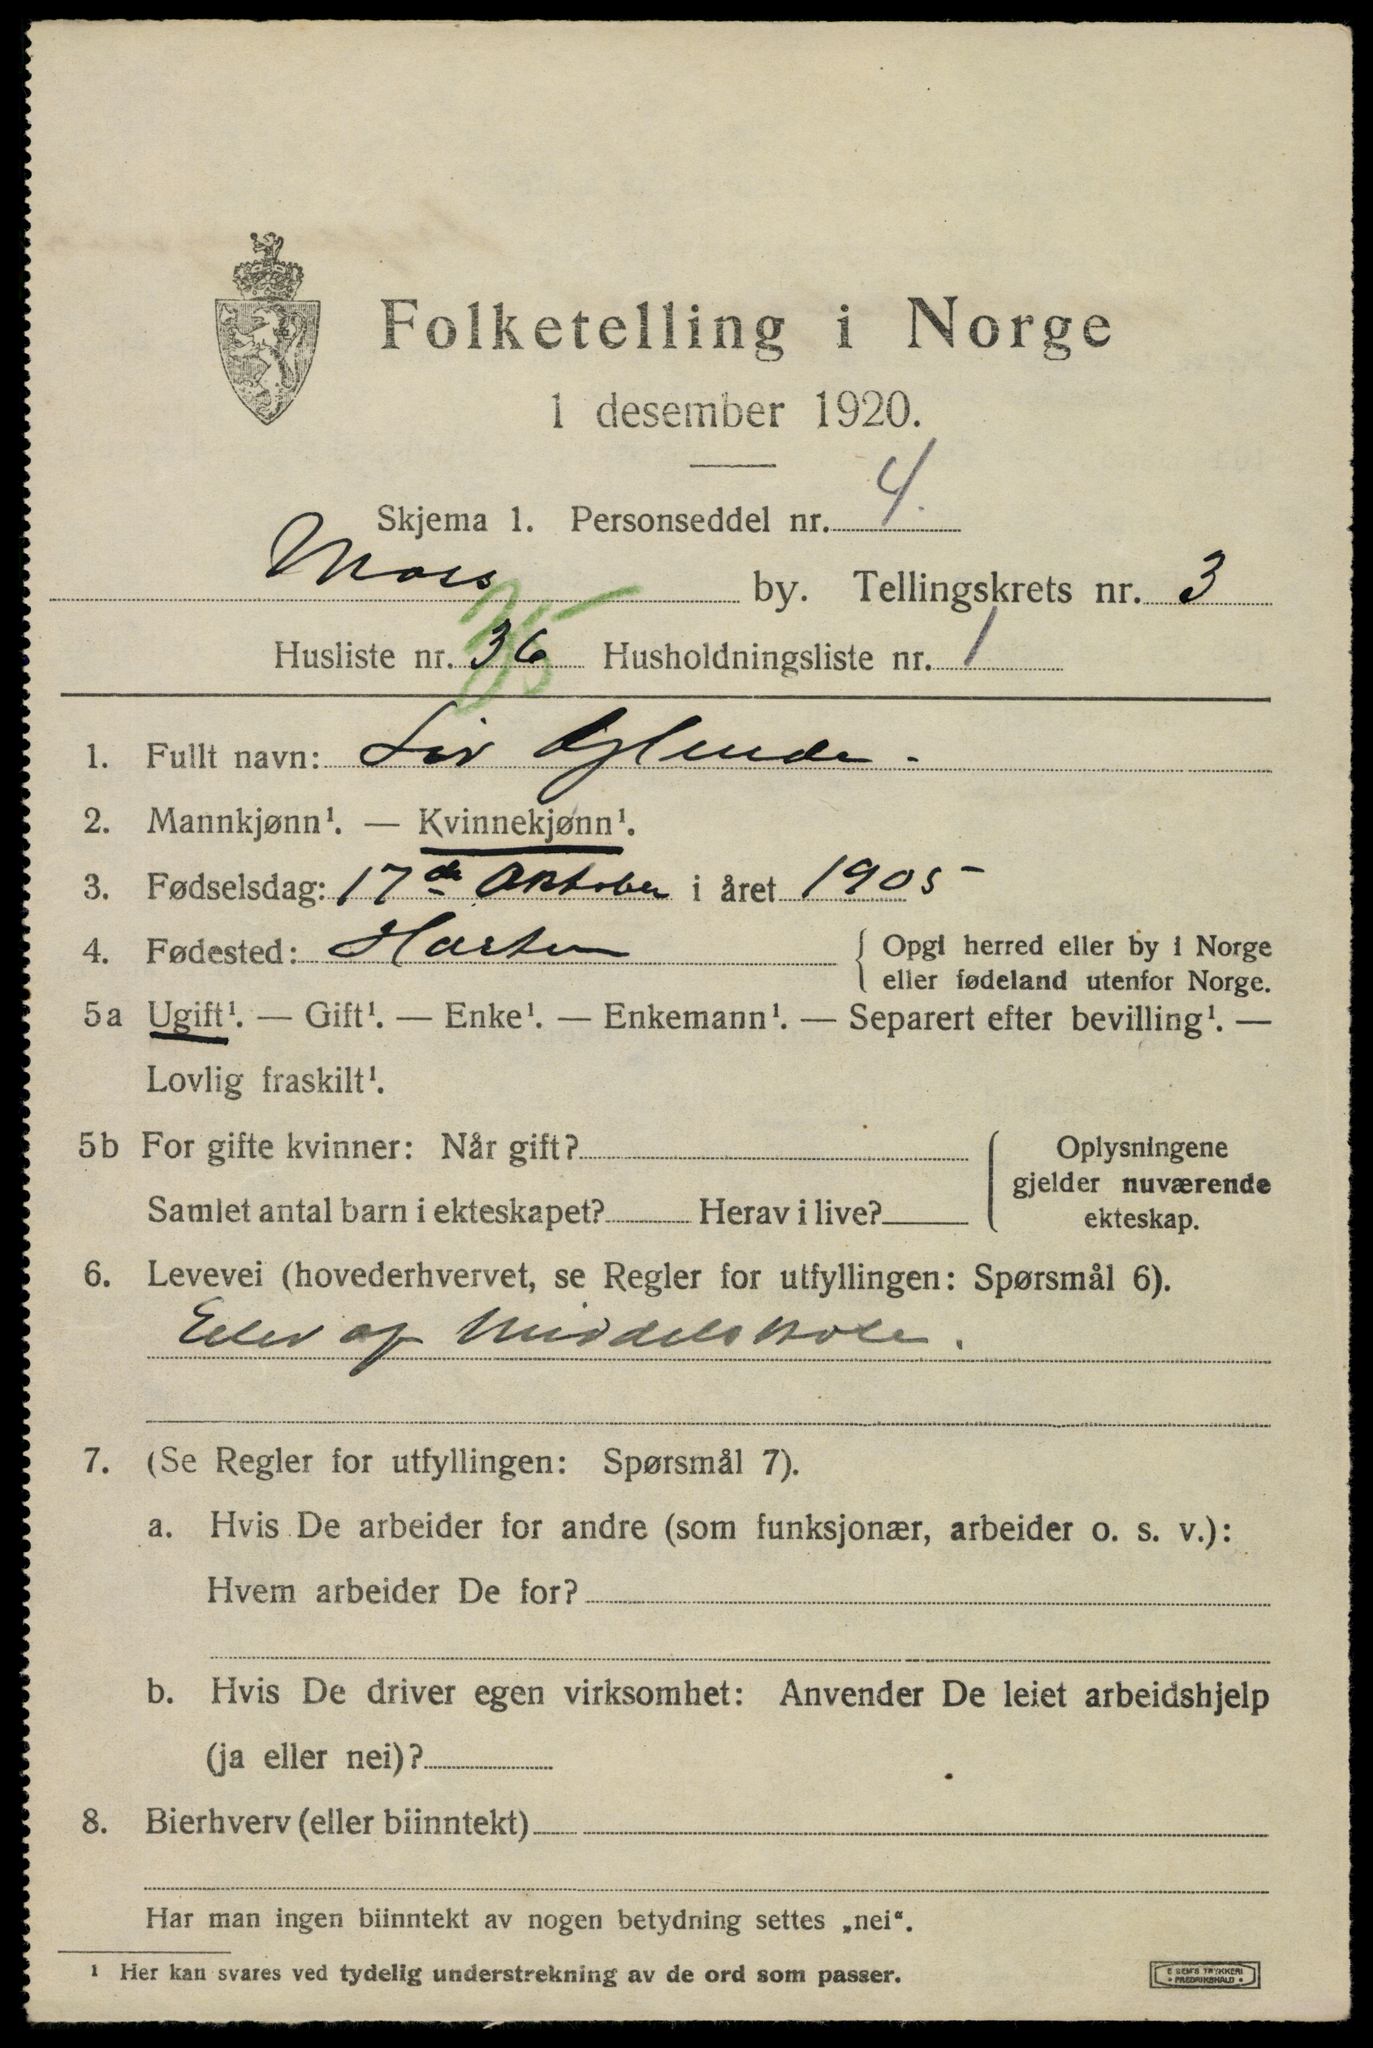 Folketelling i Norge
1 desember 1920.
Skjema 1. Personseddel nr. 4.
Moss by. Tellingskrets nr. 3
35
Husliste nr. 36 Husholdningsliste nr. 1
1. Fullt navn: Liv
2. Mannkjønn¹. — Kvinnekjønn¹.
3. Fødselsdag: 17de Oktober i året 1905
4. Fødested: { Opgi herred eller by i Norge
eller fødeland utenfor Norge.
5a Ugift¹. — Gift¹. — Enke¹. — Enkemann¹. — Separert efter bevilling¹. —
Lovlig fraskilt¹.
5b For gifte kvinner: Når gift? { Oplysningene
gjelder nuværende
Samlet antal barn i ekteskapet? Herav i live? ekteskap.
6. Levevei (hovederhvervet, se Regler for utfyllingen: Spørsmål 6).
Elev af Middelskole.
7. (Se Regler for utfyllingen: Spørsmål 7).
a. Hvis De arbeider for andre (som funksjonær, arbeider o. s. v.):
Hvem arbeider De for?
b. Hvis De driver egen virksomhet: Anvender De leiet arbeidshjelp
(ja eller nei)?
8. Bierhverv (eller biinntekt)
Har man ingen biinntekt av nogen betydning settes „nei“.
¹ Her kan svares ved tydelig understrekning av de ord som passer.
E SEM'S TRYKKERI
• FREDRIKSHALD •